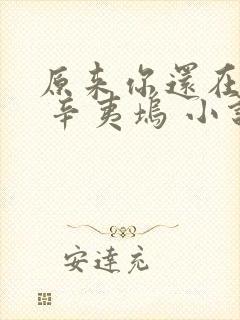 原来你還在
辛夷塢 小
安達充